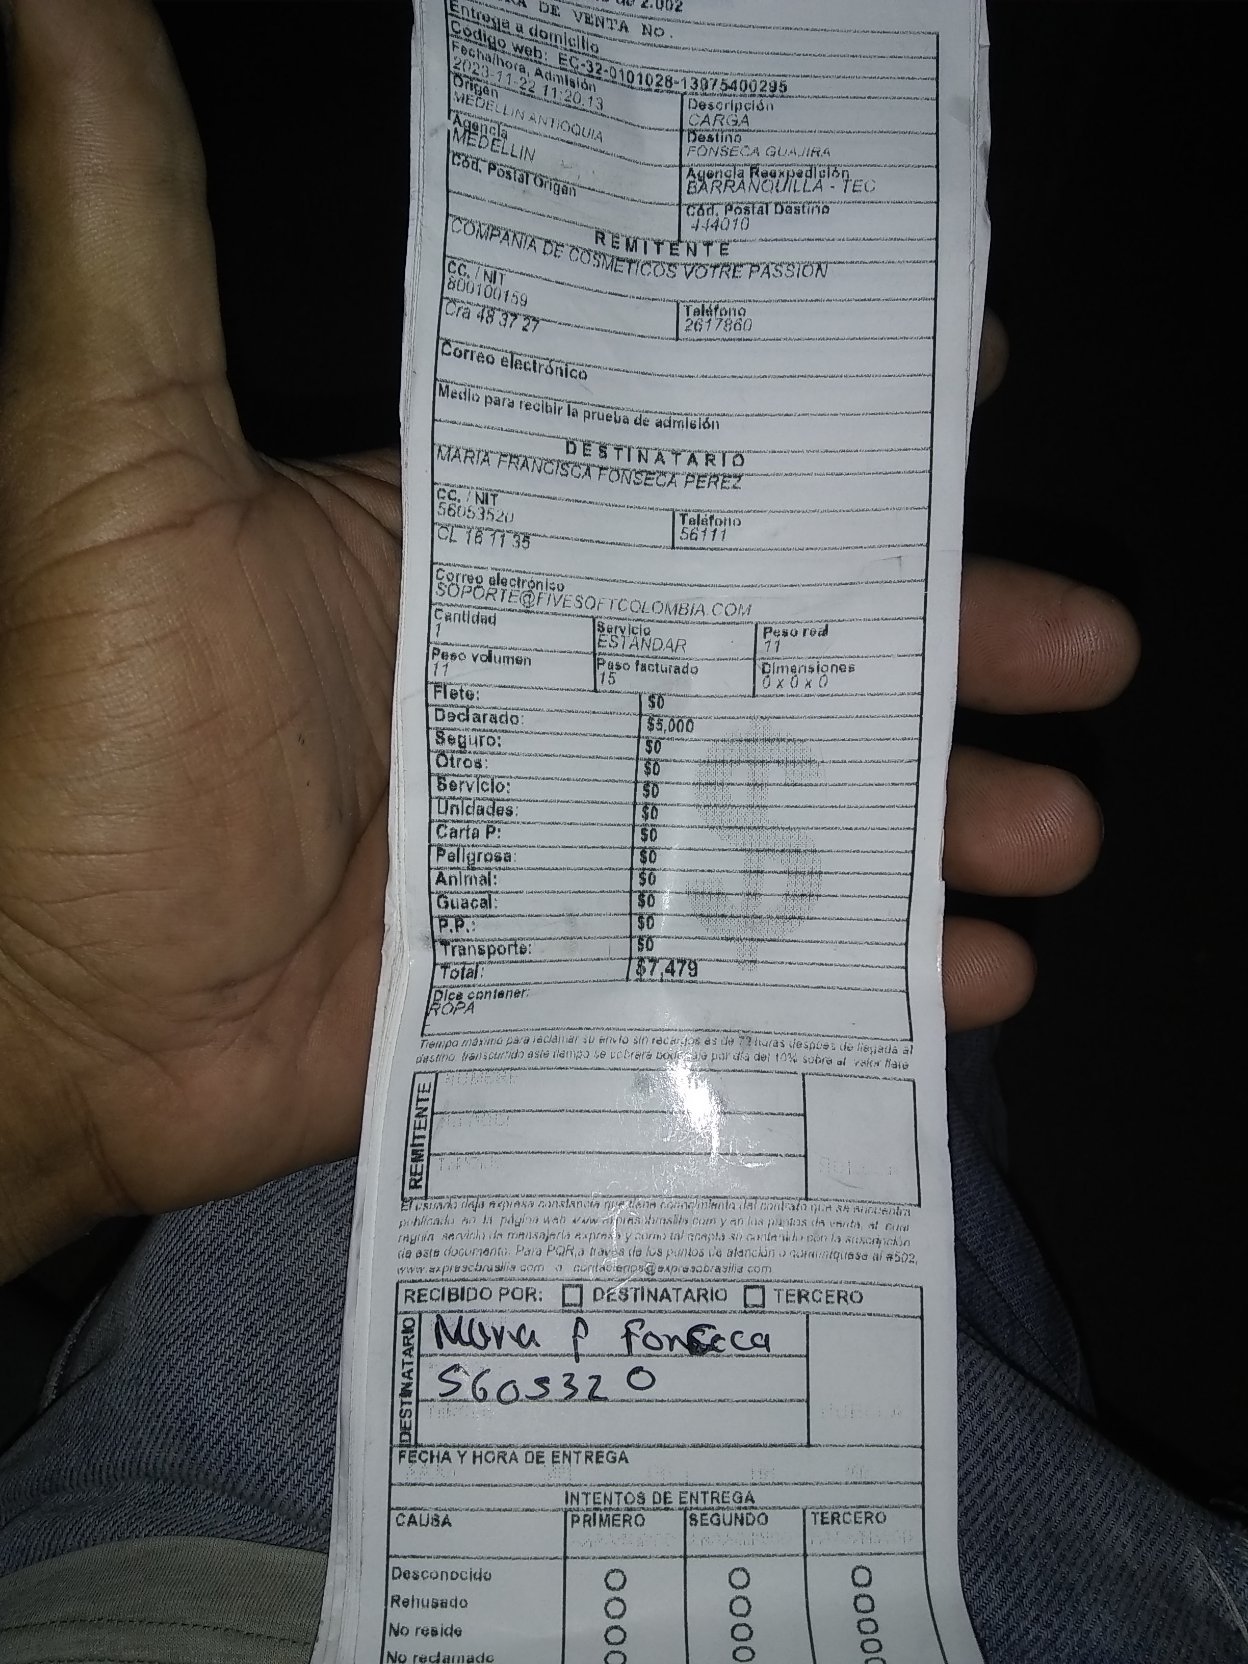 DE VENTA No.
Entrega a domicilio
Código web: EC-32-0101028-13975400295
Fecha/hora, Admisión
2023-11-22 11:20.13
Descripción
CARGA
Origen
MEDELLIN ANTIOQUIA
Destino
FONSECA GUAJIRA
Agencia
MEDELLIN
Agencia Reexpedición
BARRANQUILLA - TEC
Cód. Postal Origen
Cód. Postal Destino
444010
REMITENTE
COMPANIA DE COSMETICOS VOTRE PASSION
CC. / NIT
800100159
Teléfono
2617860
Cra 48 37 27
Correo electrónico
Medio para recibir la prueba de admisión
DESTINATARIO
MARIA FRANCISCA FONSECA PEREZ
CC. / NIT
56053520
Teléfono
56111
CL 16 11 35
Correo electrónico
SOPORTE@FIVESOFTCOLOMBIA.COM
Cantidad
1
Servicio
ESTANDAR
Peso real
11
Peso volumen
11
Peso facturado
15
Dimensiones
0 x 0 x 0
Flete: $0
Declarado: $5,000
Seguro: $0
Otros: $0
Servicio: $0
Unidades: $0
Carta P: $0
Peligrosa: $0
Animal: $0
Guacal: $0
P.P.: $0
Transporte: $0
Total: $7,479
Dice contener:
ROPA
Tiempo máximo para reclamar su envío sin recargos es de 72 horas despues de llegada al
destino, transcurrido este tiempo se cobrará por día del 10% sobre el valor flete
REMITENTE
El usuario deja expresa constancia que tiene conocimiento del contrato que se encuentra
publicado en la página web www.expresobrasilia.com y en los puntos de venta, el cual
regula servicio de mensajería expresa y como tal acepta su contenido con la suscripción
de este documento. Para PQR,a través de los puntos de atención o comuníquese al #502,
www.expresobrasilia.com o contactenos@expresobrasilia.com
RECIBIDO POR: DESTINATARIO TERCERO
DESTINATARIO
Maria P Fonseca
5605320
FECHA Y HORA DE ENTREGA
INTENTOS DE ENTREGA
CAUSA PRIMERO SEGUNDO TERCERO
Desconocido
Rehusado
No reside
No reclamado